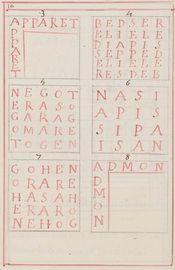 3
APPARET
P
P
A
R
E
T
4
BEDSER
ELIELE
DIAPIS
SEPPED
ELIELE
RESDEB
5
NEGOT
ERASO
GARAG
OMARE
TOGEN
6
NASI
APIS
SIPA
ISAN
7
GOHEN
ORARE
HASAH
ERARO
NEHOG
8
ADMON
D
M
O
N